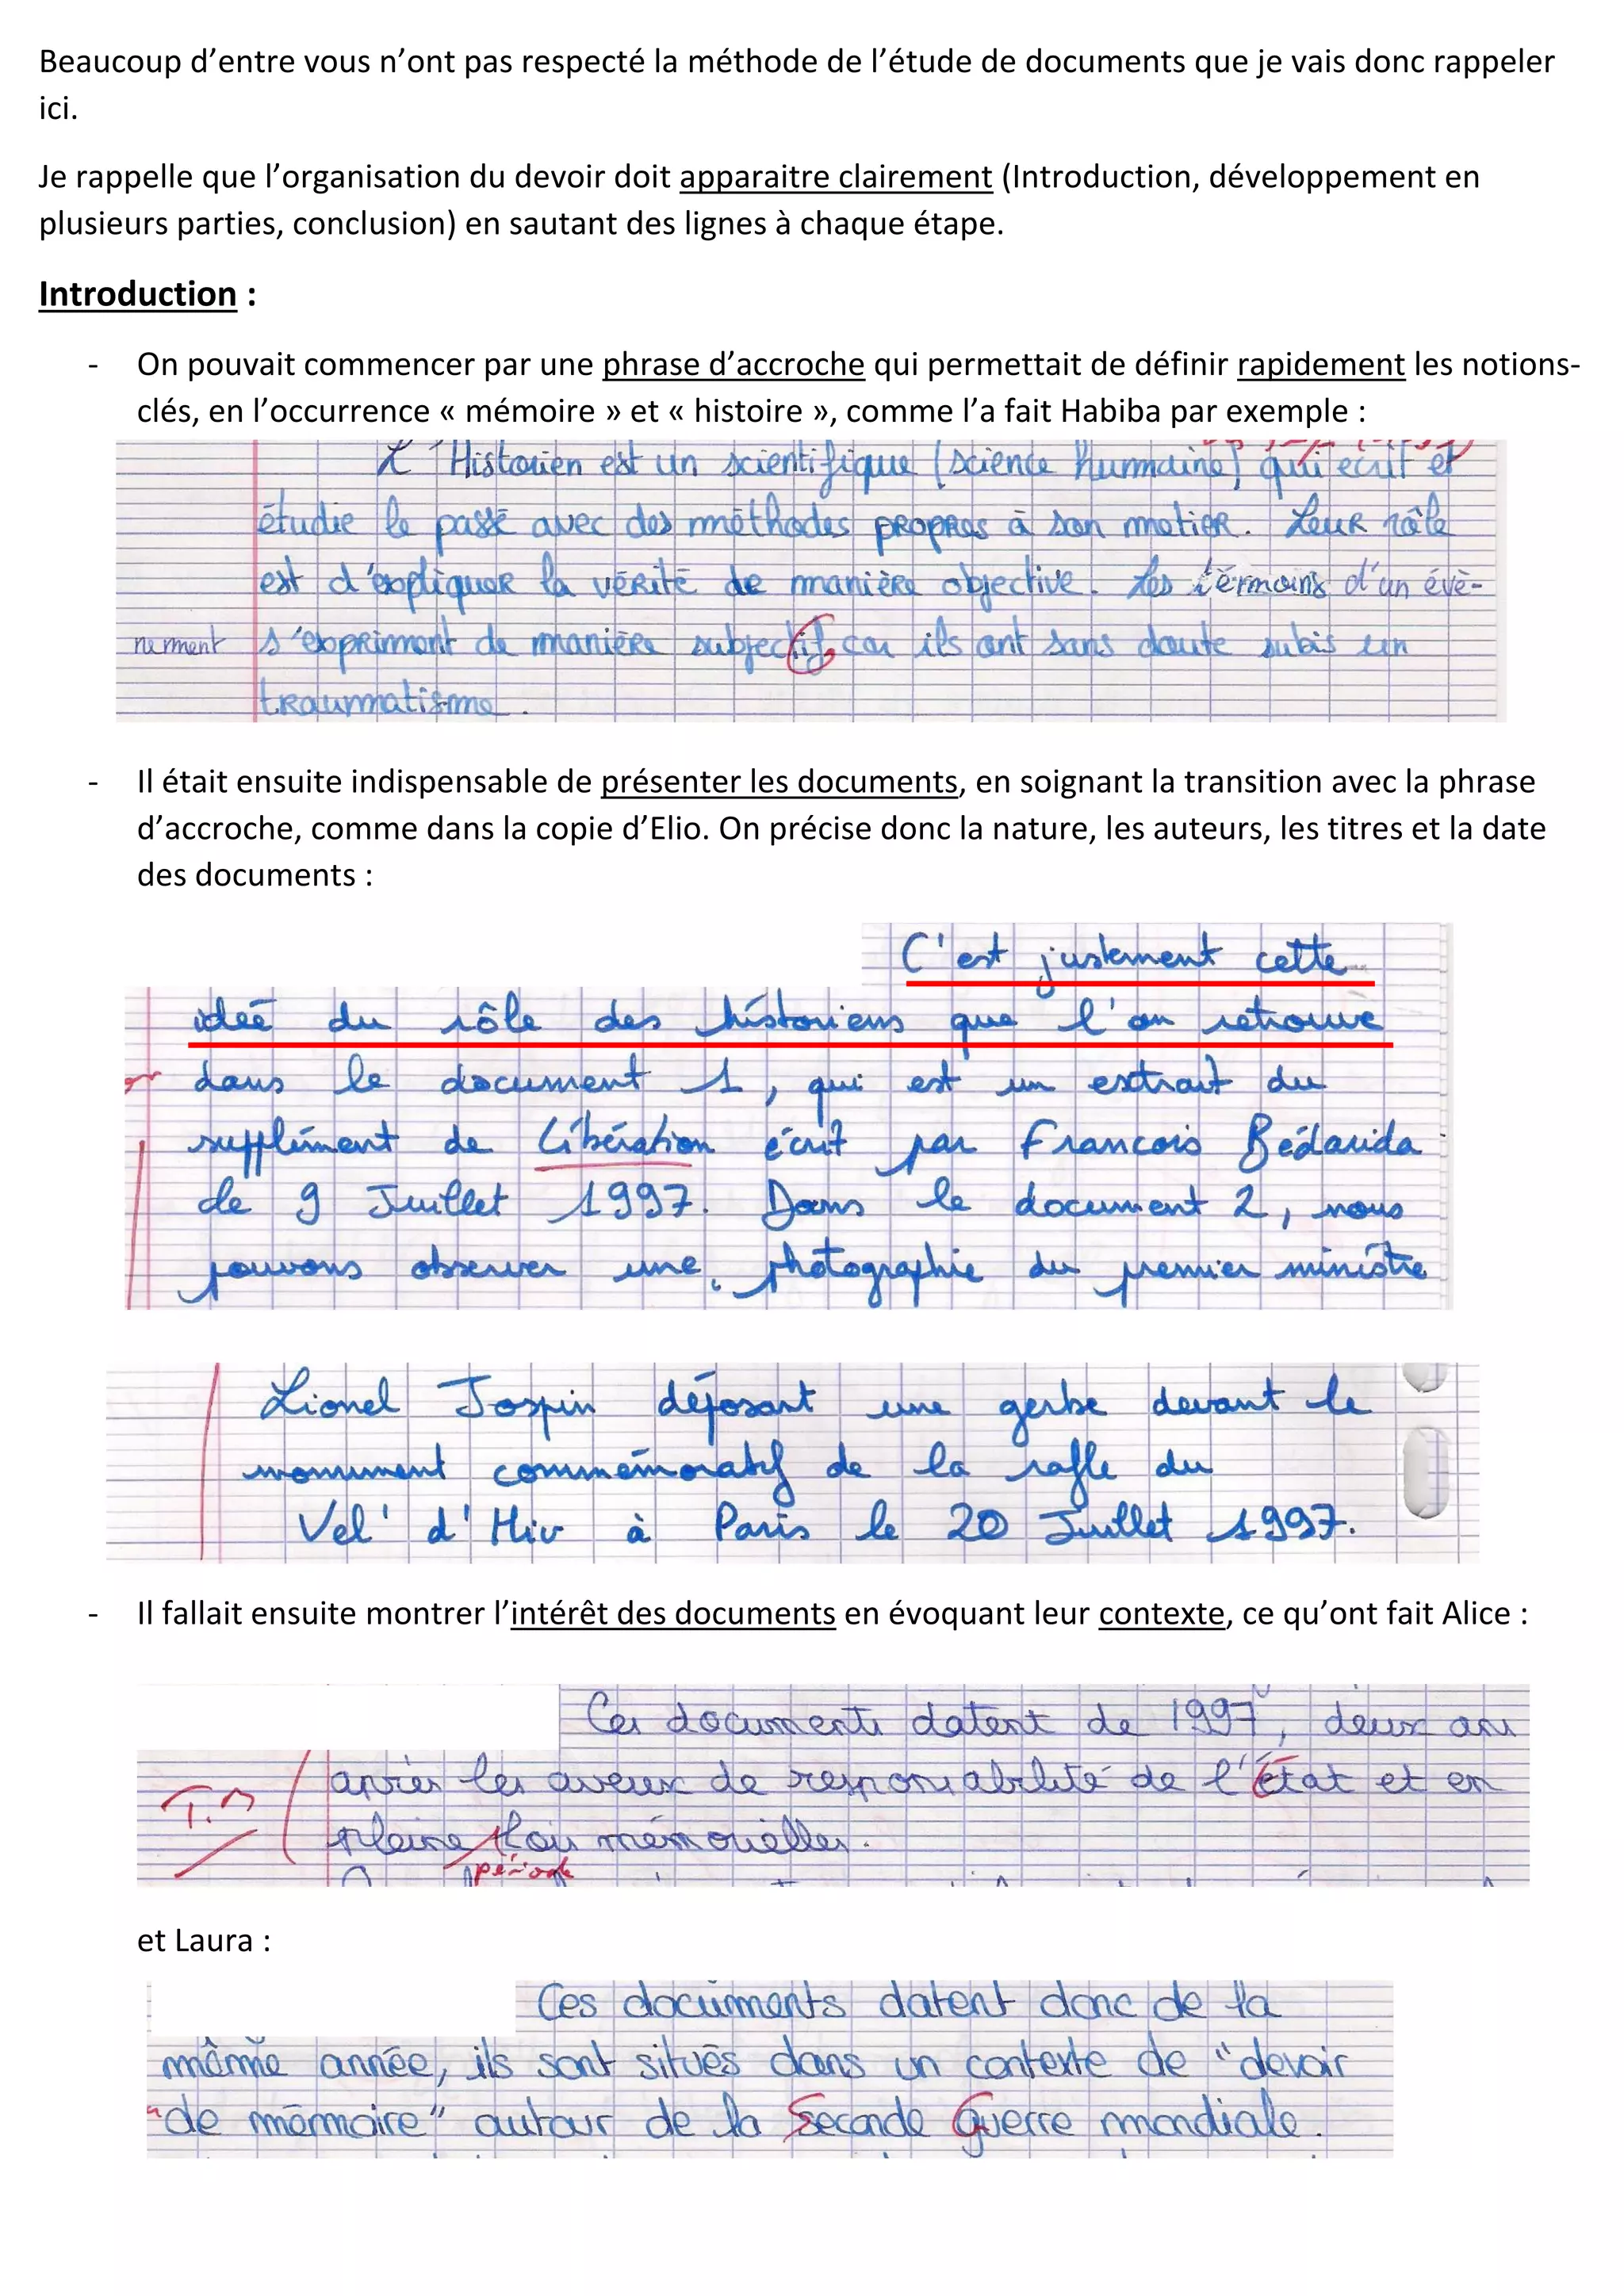 Beaucoup d’entre vous n’ont pas respecté la méthode de l’étude de documents que je vais donc rappeler
ici.
Je rappelle que l’organisation du devoir doit apparaitre clairement (Introduction, développement en
plusieurs parties, conclusion) en sautant des lignes à chaque étape.
Introduction :
- On pouvait commencer par une phrase d’accroche qui permettait de définir rapidement les notions-
clés, en l’occurrence « mémoire » et « histoire », comme l’a fait Habiba par exemple :
L'Historien est un scientifique (science humaine) qui écrit et
étudie le passé avec des méthodes propres à son metier. Leur rôle
est d'expliquer la vérité de manière objective. Les témoins d'un évè-
nement s'expriment de manière subjectif, car ils ont sans doute subis un
traumatisme.
- Il était ensuite indispensable de présenter les documents, en soignant la transition avec la phrase
d’accroche, comme dans la copie d’Elio. On précise donc la nature, les auteurs, les titres et la date
des documents :
C'est justement cette
idée du rôle des historiens que l'on retrouve
dans le document 1, qui est un extrait du
supplément de Libération écrit par Francois Bédarida
le 9 Juillet 1997. Dans le document 2, nous
pouvons observer une photographie du premier ministre
Lionel Jospin déposant une gerbe devant le
monument commémoratif de la rafle du
Vel' d'Hiv à Paris le 20 Juillet 1997.
- Il fallait ensuite montrer l’intérêt des documents en évoquant leur contexte, ce qu’ont fait Alice :
Ces documents datent de 1997, deux ans
après les aveux de responsabilité de l'État et en
T.B
pleine lois mémorielles.
période
et Laura :
Ces documents datent donc de la
même année, ils sont situés dans un contexte de "devoir
de mémoire" autour de la Seconde Guerre mondiale.